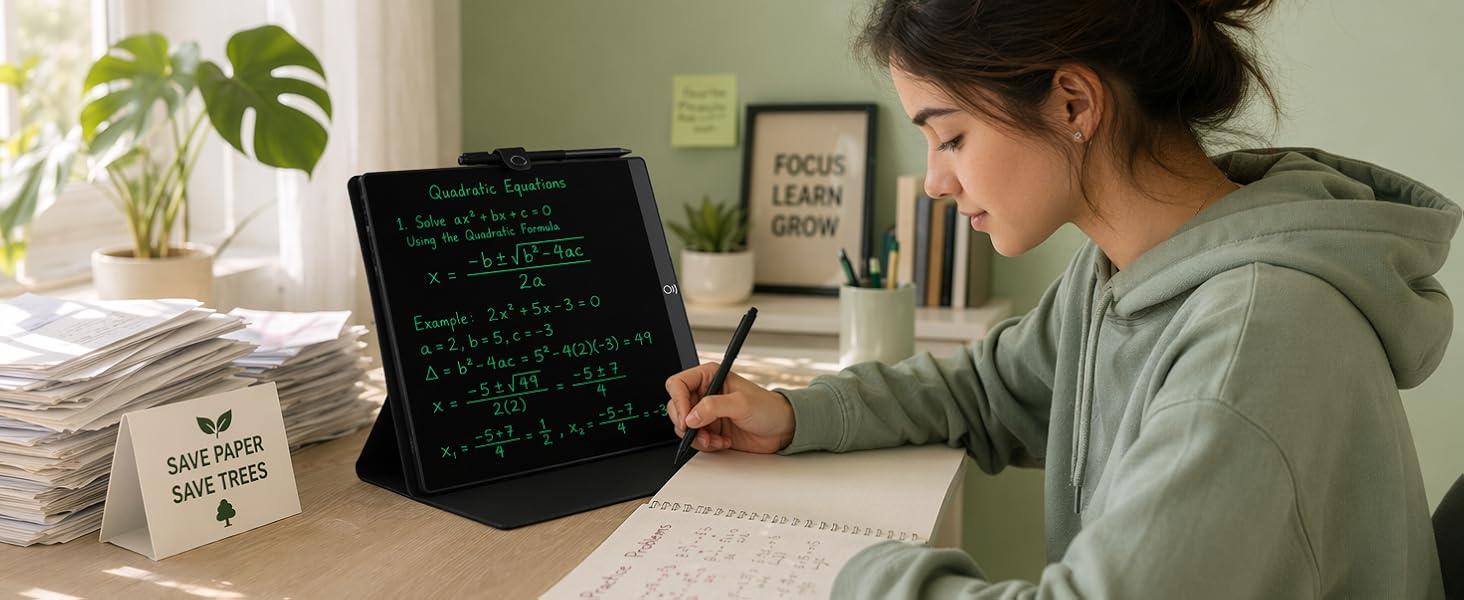 Quadratic Equations
1. Solve ax² + bx + c = 0
Using the Quadratic Formula
x = (-b ± √(b² - 4ac)) / 2a
Example: 2x² + 5x - 3 = 0
a = 2, b = 5, c = -3
Δ = b² - 4ac = 5² - 4(2)(-3) = 49
x = (-5 ± √49) / 2(2) = (-5 ± 7) / 4
x₁ = (-5+7) / 4 = 1/2 , x₂ = (-5-7) / 4 = -3
FOCUS
LEARN
GROW
SAVE PAPER
SAVE TREES
Practice Problems